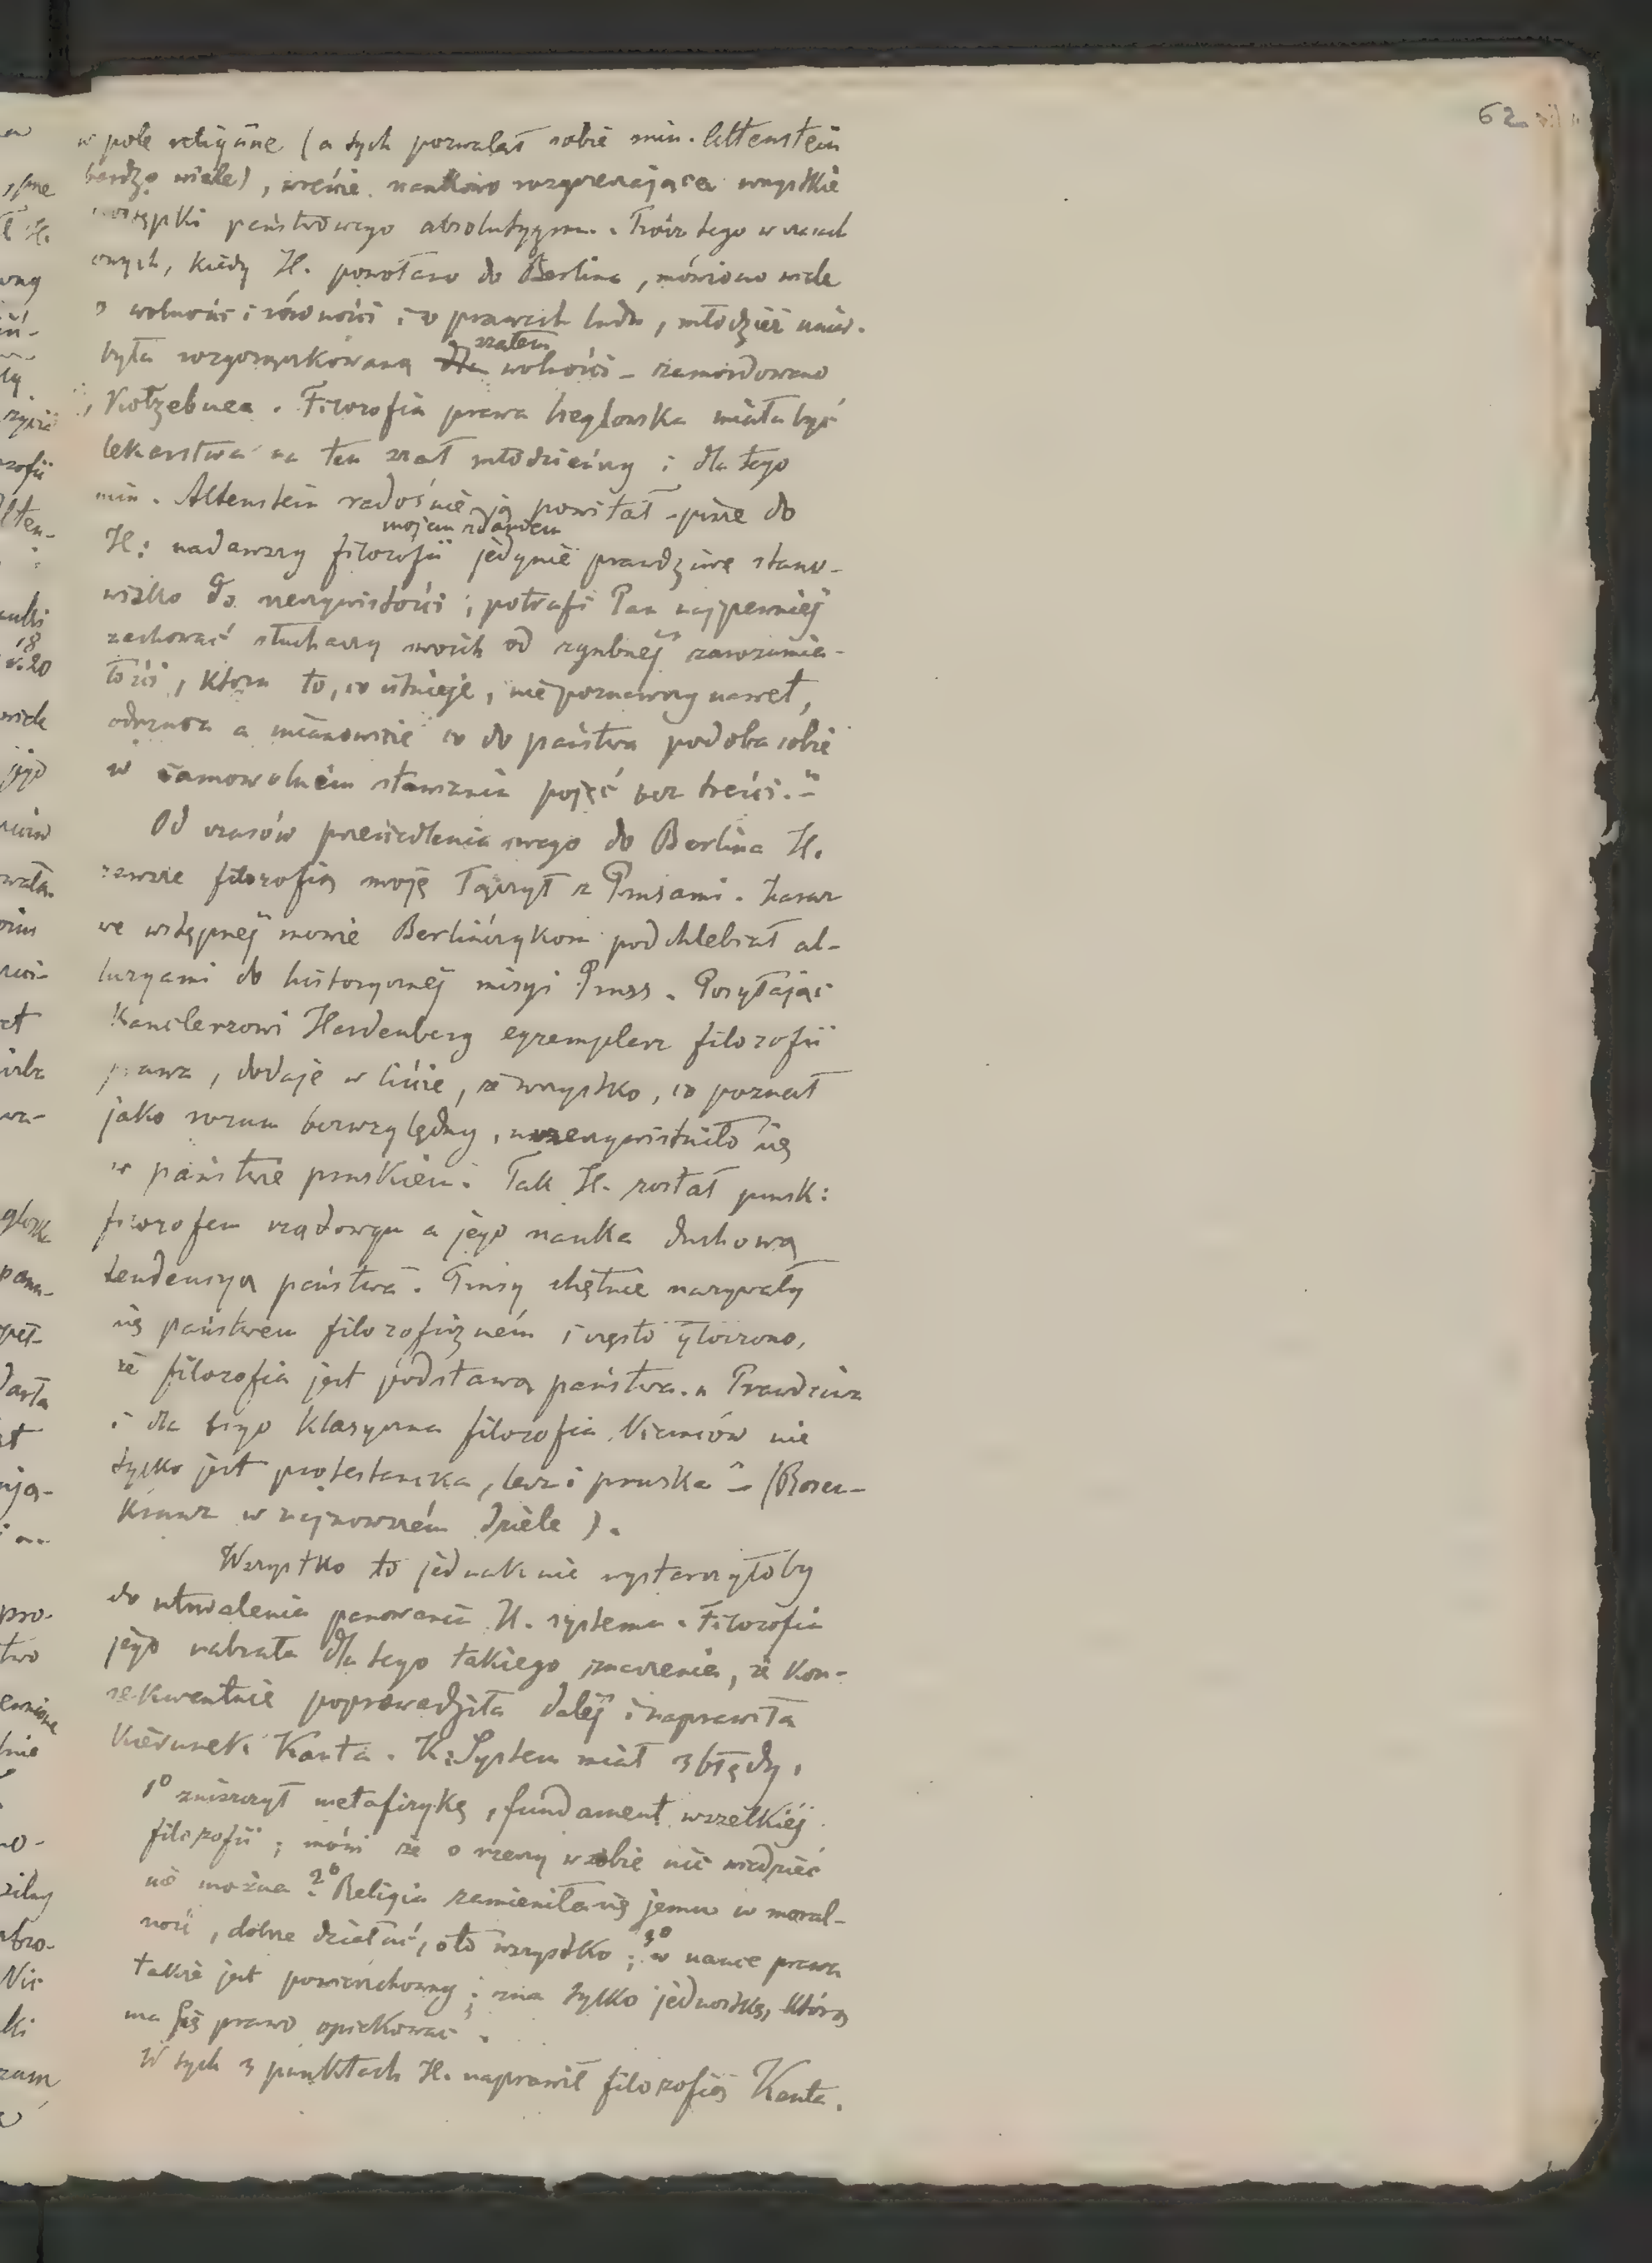 62
w pole religijne (a tych pozwalał sobie min. Altenstein
bardzo wiele), wreście naukowo rozgrzeszająca wszystkie
postępki państwowego absolutyzmu. Prócz tego w czasach
onych, kiedy H. powołano do Berlina, mówiono wiele
o wolności i równości i o prawach ludu, młodzież uniw.
była rozgorączkowaną szałem wolności – zamordowano
Kotzebuea. Filozofia prawa heglowska miała być
lekarstwem na ten szał młodzieńczy i dla tego
min. Altenstein radośnie ją powitał – pisze do
H: nadawszy filozofii mojem zdaniem jedynie prawdziwe stano-
wisko do rzeczywistości, potrafi Pan najpewniej
zachować słuchaczy swoich od zgubnej zarozumia-
łości, która to, co istnieje, nie poznawszy nawet,
odrzuca a mianowicie co do państwa podoba sobie
w samowolném stawianiu pojęć bez treści." –
Od czasów przesiedlenia swego do Berlina H.
zawsze filozofią swoję łączył z Prusami. Zaraz
we wstępnej mowie Berlińczykom podchlebiał al-
luzyami do historycznej misyi Pruss. Posyłając
Kanclerzowi Hardenberg egzemplarz filozofii
prawa, dodaje w liście, że wszystko, co poznał
jako rozum bezwzględny, urzeczywistniło się
w państwie pruskiem. Tak H. został prusk:
filozofem rządowym a jego nauka duchową
tendencyą państwa. Prusy chętnie nazywały
się państwem filozoficzném i często głoszono,
że filozofia jest podstawą państwa. „Prawdziwa
i dla tego klasyczna filozofia Niemców nie
tylko jest protestancka, lecz i pruska" – (Rosen-
kranz w najnowszém dziele).
Wszystko to jednak nie wystarczyłoby
do utrwalenia panowania H. systemu. Filozofia
jego nabrała dla tego takiego znaczenia, że kon-
sekwentnie poprowadziła dalej i naprawiła
kierunek Kanta. K: System miał 3 błędy,
1º zniszczył metafizykę, fundament wszelkiéj
filozofii; mówi że o rzeczy w sobie nic wiedzieć
nie można. 2º Religia zamieniła się jemu w moral-
ność, dobrze działać, oto wszystko; 3º w nauce prawa
także jest powierzchowny; zna tylko jednostkę, którą
ma się prawo opiekować.
W tych 3 punktach H. naprawił filozofią Kanta.